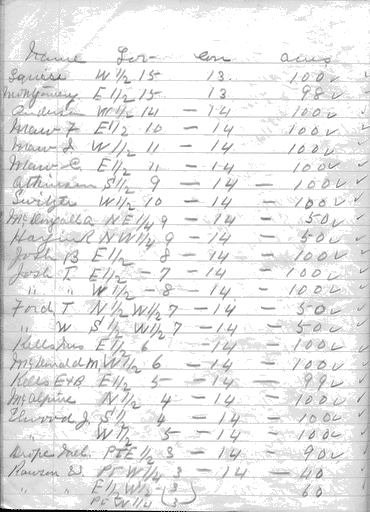 Name Lot Con acres
Squire W 1/2 15 13 100 ✓
Montgomery E 1/2 15 13 98 ✓
Anderson W 1/2 14 - 14 100 ✓
Maw F E 1/2 10 - 14 100 ✓
Maw J W 1/2 11 - 14 100 ✓
Maw C. E 1/2 11 - 14 100 ✓
Atkinson S 1/2 9 - 14 - 100 ✓
W 1/2 10 - 14 - 100 ✓
NE 1/4 9 - 14 - 50 ✓
R NW 1/4 9 - 14 - 50 ✓
Josh B E 1/2 - 8 - 14 - 100 ✓
Josh T. E 1/2 - 7 - 14 - 100 ✓
" " W 1/2 - 8 - 14 - 100 ✓
Ford T. N 1/2 W 1/2 7 - 14 - 50 ✓
" W. S 1/2 W 1/2 7 - 14 - 50 ✓
Kells Mrs E 1/2 6 - 14 - 100 ✓
McDonald M W 1/2 6 - 14 - 100 ✓
Kells E & B E 1/2 5 - 14 - 99 ✓
McAlpine N 1/2 4 - 14 - 100 ✓
Elwood J. S 1/2 4 - 14 - 100 ✓
" W 1/2 5 - 14 - 100 ✓
Drope Pt E 1/2 3 - 14 - 90 ✓
Rawson W. Pt W 1/4 3 - 14 - 40
" " E 1/2 W 1/2 3 60
Pt W 1/4 3